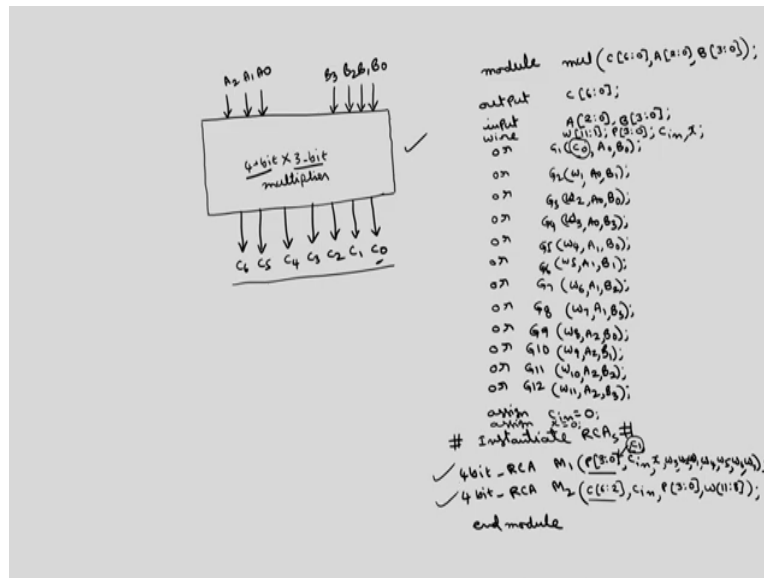 A2 A1 A0
B3 B2 B1 B0
4-bit X 3-bit
multiplier
C6 C5 C4 C3 C2 C1 C0
module mul(C[6:0], A[2:0], B[3:0]);
output C[6:0];
input A[2:0], B[3:0];
wire W[11:1]; P[3:0]; Cin, x;
or G1(C0, A0, B0);
or G2(W1, A0, B1);
or G3(W2, A0, B0);
or G4(W3, A0, B3);
or G5(W4, A1, B0);
or G6(W5, A1, B1);
or G7(W6, A1, B2);
or G8(W7, A1, B3);
or G9(W8, A2, B0);
or G10(W9, A2, B1);
or G11(W10, A2, B2);
or G12(W11, A2, B3);
assign Cin=0;
assign x=0;
# Instantiate RCAs #
C1
4bit_RCA M1(P[3:0], Cin, x,
4bit_RCA M2(C[6:2], Cin, P[3:0], W[11:8]);
endmodule